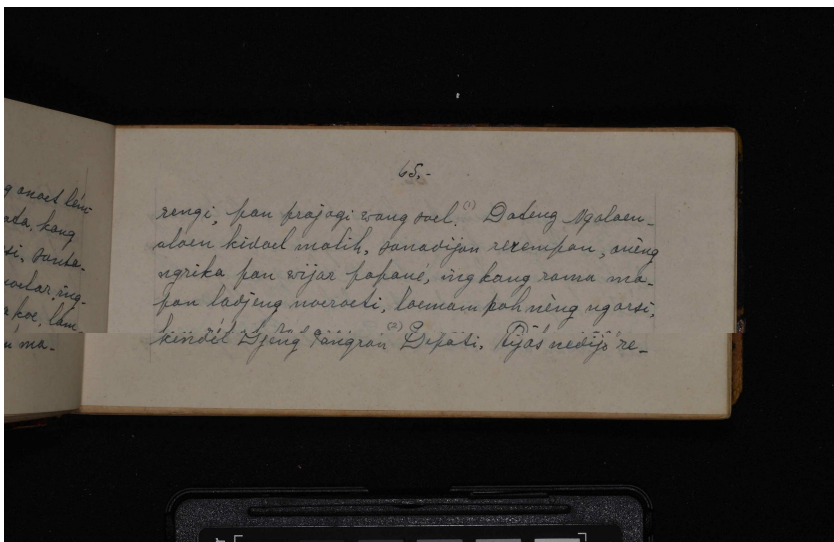 g anoet lem-
ata, kang
si, santa-
ing-
a koe, lam-
ma-
65.-
rengi, pan prajogi wong doel. (1) Dateng Ngalaen-
alaen kidoel malih, sanadijan rerempon, anèng
ngrika pan wijar papané, ingkang rama ma-
pan ladjeng noeroeti, loemampah nèng ngarsi,
kendèl Djeng Pangran (2) Dipati. Tijas nedija re-